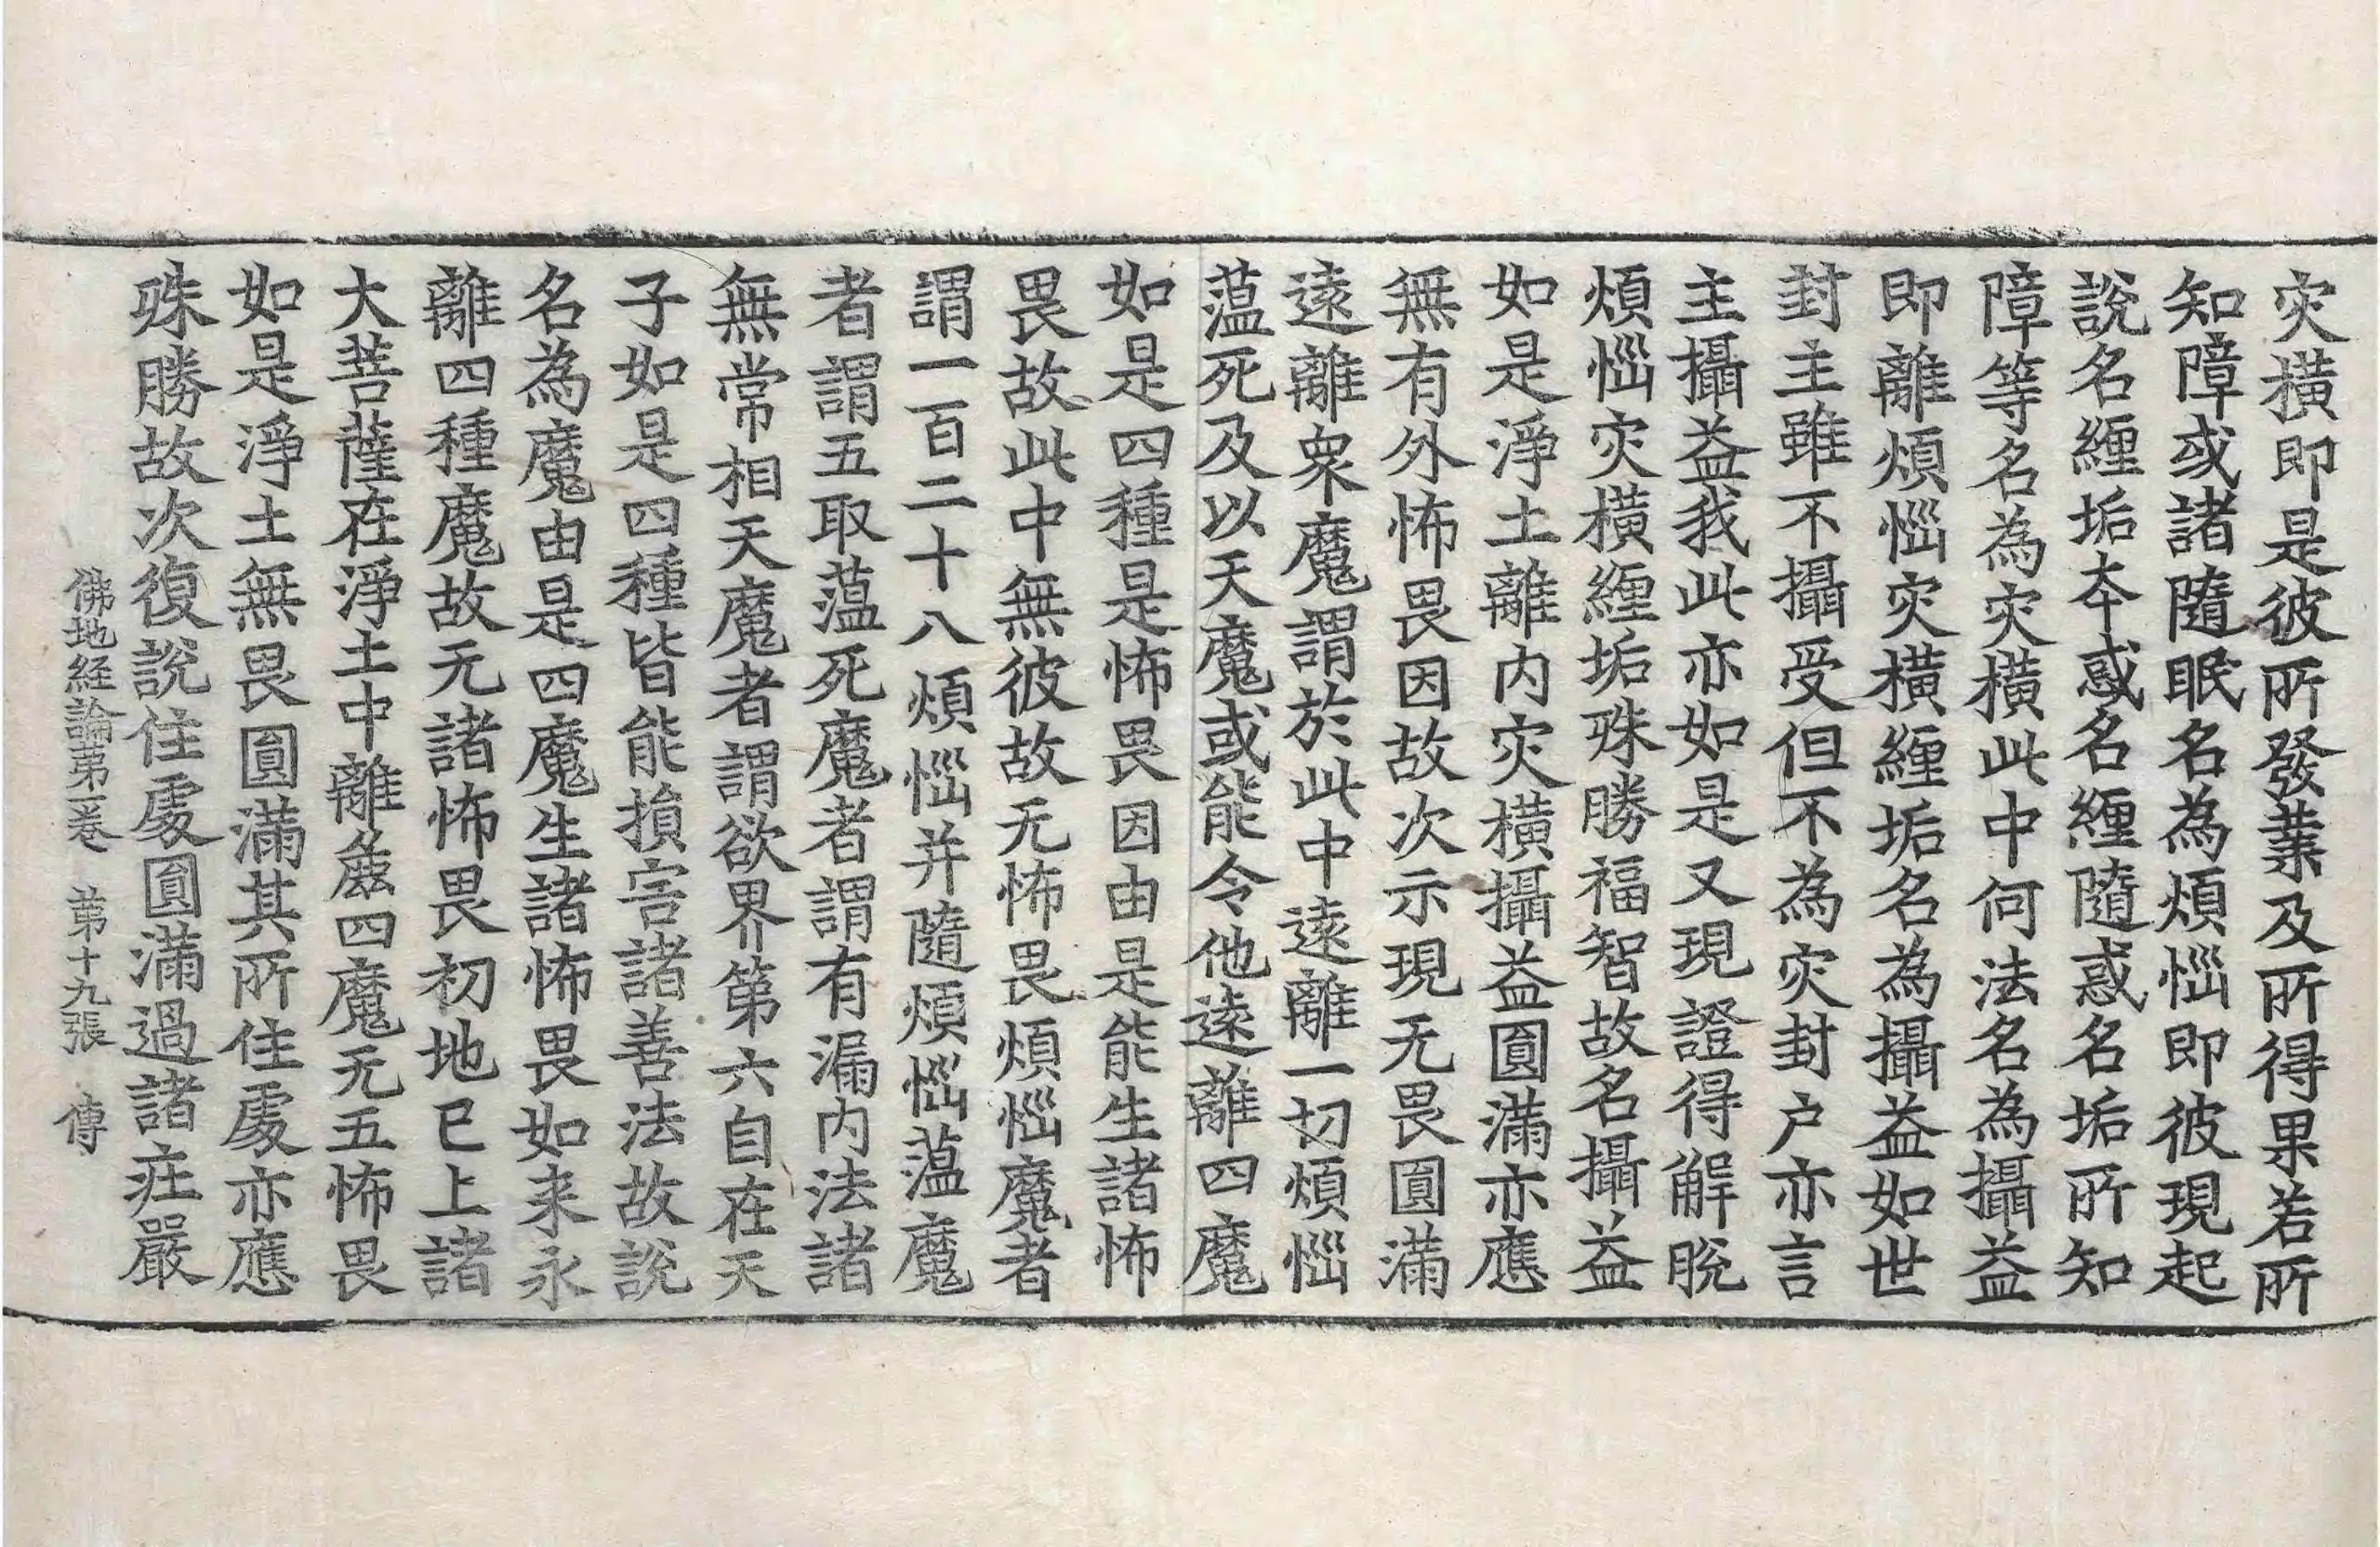 灾橫即是彼所發業及所得果若所
知障或諸隨眠名為煩惱即彼現起
說名纏垢本惑名纏隨惑名垢所知
障等名為灾橫此中何法名為攝益
即離煩惱灾橫纏垢名為攝益如世
封主雖不攝受但不為灾封户亦言
主攝益我此亦如是又現證得解脫
煩惱灾橫纏垢殊勝福智故名攝益
如是淨土離内灾橫攝益圓滿亦應
無有外怖畏因故次示現无畏圓滿
遠離衆魔謂於此中遠離一切煩惱
蕰死及以天魔或能令他遠離四魔
如是四種是怖畏因由是能生諸怖
畏故此中無彼故无怖畏煩惱魔者
謂一百二十八煩惱并隨煩惱蕰魔
者謂五取蕰死魔者謂有漏内法諸
無常相天魔者謂欲界第六自在天
子如是四種皆能損害諸善法故說
名為魔由是四魔生諸怖畏如来永
離四種魔故无諸怖畏初地已上諸
大菩薩在淨土中離麁四魔无五怖畏
如是淨土無畏圓滿其所住處亦應
殊勝故次復說住處圓滿過諸莊嚴
佛地経論第一卷　第十九張　傳